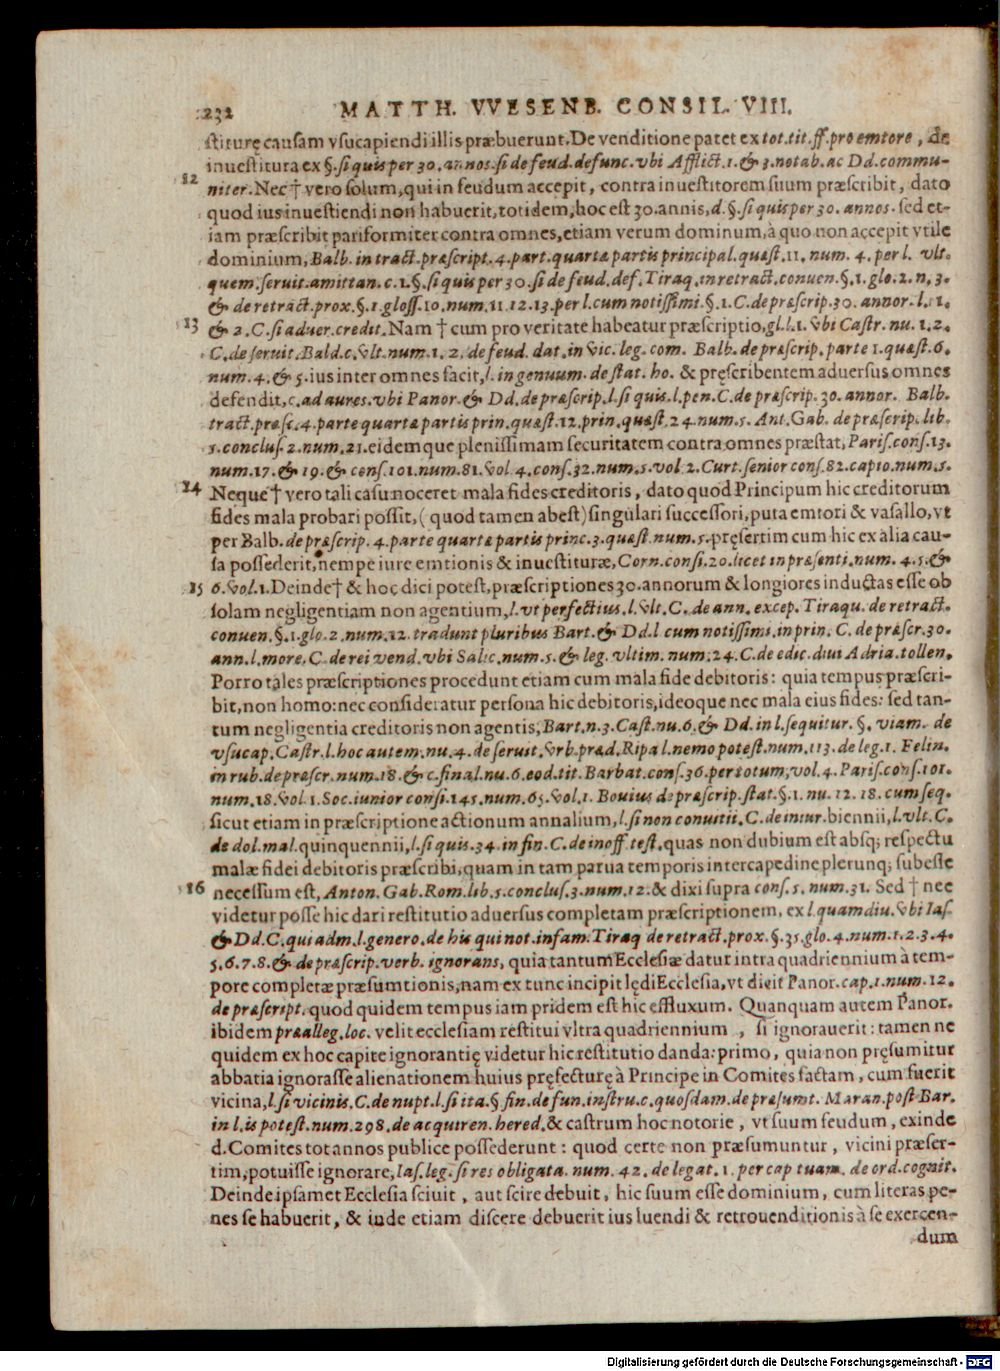 232 MATTH. VVESENB. CONSIL. VIII.
stiturę causam vsucapiendi illis præbuerunt. De venditione patet ex tot. tit. ff. pro emtore, de
inuestitura ex §. si quis per 30. annos. si de feud. defunc. vbi Afflict. 1. & 3. notab. ac Dd. commu-
12 niter. Nec † vero solum, qui in feudum accepit, contra inuestitorem suum præscribit, dato
quod ius inuestiendi non habuerit, totidem, hoc est 30. annis, d. §. si quis per 30. annos. sed et-
iam præscribit pariformiter contra omnes, etiam verum dominum, à quo non accepit vtile
dominium, Balb. in tract. præscript. 4. part. quartæ partis principal. quæst. 11. num. 4. per l. vlt.
quem. seruit. amittan. c. 1. §. si quis per 30. si de feud. def. Tiraq. in retract. conuen. §. 1. glo. 2. n. 3.
& de retract. prox. §. 1. gloss. 10. num. 11. 12. 13. per l. cum notissimi. §. 1. C. de præscrip. 30. annor. l. 1.
13 & 2. C. si aduer. credit. Nam † cum pro veritate habeatur præscriptio, gl. l. 1. vbi Castr. nu. 1. 2.
C. de seruit. Bald. c. vlt. num. 1. 2. de feud. dat. in vic. leg. com. Balb. de præscrip. parte 1. quæst. 6.
num. 4. & 5. ius inter omnes facit, l. ingenuum. de stat. ho. & pręscribentem aduersus omnes
defendit, c. ad aures. vbi Panor. & Dd. de præscrip. l. si quis. l. pen. C. de præscrip. 30. annor. Balb.
tract. præsc. 4. parte quartæ partis prin. quæst. 12. prin. quæst. 24. num. 5. Ant. Gab. de præscrip. lib.
5. conclus. 2. num. 21. eidemque plenissimam securitatem contra omnes præstat, Paris. cons. 13.
num. 17. & 19. & cons. 101. num. 81. vol. 4. cons. 32. num. 5. vol. 2. Curt. senior cons. 82. capio. num. 5.
14 Neque † vero tali casu noceret mala fides creditoris, dato quod Principum hic creditorum
fides mala probari possit, (quod tamen abest) singulari successori, puta emtori & vasallo, vt
per Balb. de præscrip. 4. parte quartæ partis princ. 3. quæst. num. 5. pręsertim cum hic ex alia cau-
sa possederit, nempe iure emtionis & inuestituræ, Corn. consi. 20. licet in præsenti. num. 4. 5. &
15 6. vol. 1. Deinde † & hoc dici potest, præscriptiones 30. annorum & longiores inductas esse ob
solam negligentiam non agentium, l. vt perfectius. l. vlt. C. de ann. excep. Tiraqu. de retract.
conuen. §. 1. glo. 2. num. 12. tradunt pluribus Bart. & Dd. l cum notissimi. in prin. C. de præscr. 30.
ann. l. more. C. de rei vend. vbi Salic. num. 5. & leg. vltim. num. 24. C. de edic. diui Adria. tollen.
Porro tales præscriptiones procedunt etiam cum mala fide debitoris: quia tempus præscri-
bit, non homo: nec consideratur persona hic debitoris, ideoque nec mala eius fides: sed tan-
tum negligentia creditoris non agentis, Bart. n. 3. Cast. nu. 6. & Dd. in l. sequitur. §. viam. de
vsucap. Castr. l. hoc autem. nu. 4. de seruit. vrb. præd. Ripa l. nemo potest. num. 113. de leg. 1. Felin.
in rub. de præscr. num. 18. & c. final. nu. 6. eod. tit. Barbat. cons. 36. per totum, vol. 4. Paris. cons. 101.
num. 18. vol 1. Soc. iunior consi. 145. num. 65. vol. 1. Bouius de præscrip. stat. §. 1. nu. 12. 18. cum seq.
sicut etiam in præscriptione actionum annalium, l. si non conuitii. C. de iniur. biennii, l. vlt. C.
de dol. mal. quinquennii, l. si quis. 34. in fin. C. de inoff. test, quas non dubium est absq; respectu
malæ fidei debitoris præscribi, quam in tam parua temporis intercapedine plerunq; subesse
16 necessum est, Anton. Gab. Rom. lib. 5. conclus. 3. num. 12. & dixi supra cons. 5. num. 31. Sed † nec
videtur posse hic dari restitutio aduersus completam præscriptionem, ex l. quamdiu. vbi Ias.
& Dd. C. qui adm. l. genero. de his qui not. infam. Tiraq de retract. prox. §. 35. glo. 4. num. 1. 2. 3. 4.
5. 6. 7. 8. & de præscrip. verb. ignorans, quia tantum Ecclesiæ datur intra quadriennium à tem-
pore completæ præsumtionis, nam ex tunc incipit lędi Ecclesia, vt dicit Panor. cap. 1. num. 12.
de præscript. quod quidem tempus iam pridem est hic effluxum. Quanquam autem Panor.
ibidem præalleg. loc. velit ecclesiam restitui vltra quadriennium, si ignorauerit: tamen ne
quidem ex hoc capite ignorantię videtur hic restitutio danda: primo, quia non pręsumitur
abbatia ignorasse alienationem huius pręfecturę à Principe in Comites factam, cum fuerit
vicina, l. si vicinis. C. de nupt. l. si ita. §. fin. de fun. instru. c. quosdam. de præsumt. Maran. post Bar.
in l. is potest. num. 298. de acquiren. hered. & castrum hoc notorie, vt suum feudum, exinde
d. Comites tot annos publice possederunt: quod certe non præsumuntur, vicini præser-
tim, potuisse ignorare, Ias. leg. si res obligata. num. 42. de legat. 1. per cap tuam. de ord. cognit.
Deinde ipsamet Ecclesia sciuit, aut scire debuit, hic suum esse dominium, cum literas pe-
nes se habuerit, & inde etiam discere debuerit ius luendi & retrouenditionis à se exercen-
dum
Digitalisierung gefördert durch die Deutsche Forschungsgemeinschaft - DFG